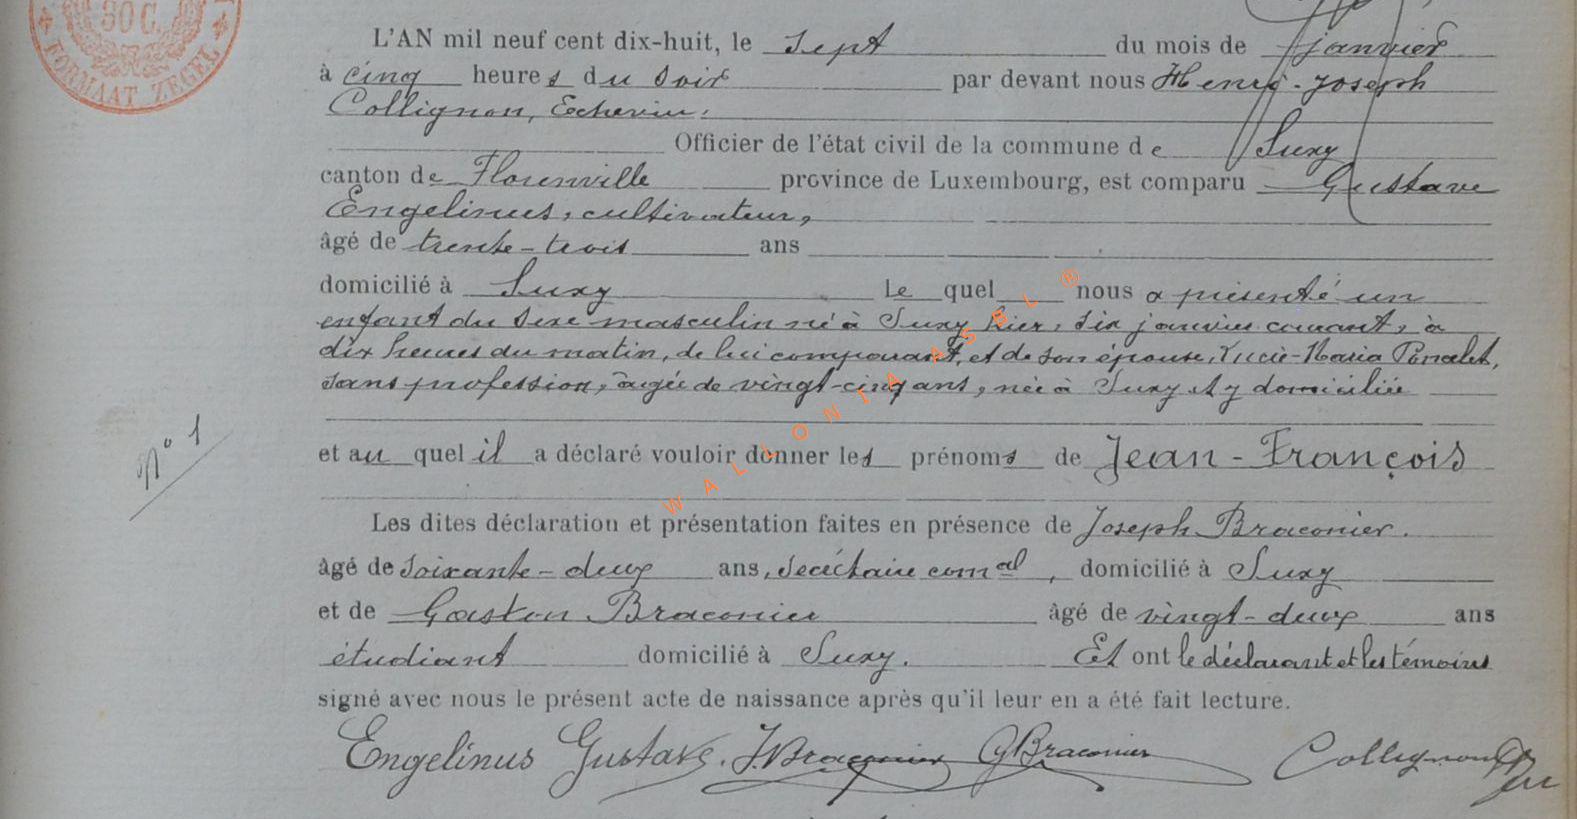 50 C.
FORMAAT ZEGEL
L'AN mil neuf cent dix-huit, le sept du mois de janvier
à cinq heures du soir par devant nous Henri-Joseph
Collignon, Echevin,
Officier de l'état civil de la commune de Suxy
canton de Florenville province de Luxembourg, est comparu Gustave
Engelinus, cultivateur,
âgé de trente-trois ans
domicilié à Suxy Le quel nous a présenté un
enfant du sexe masculin né à Suxy hier, six janvier courant, à
dix heures du matin, de lui comparant, et de son épouse, Lucie-Maria Poncelet,
sans profession, âgée de vingt-cinq ans, née à Suxy et y domiciliée
N° 1
et au quel il a déclaré vouloir donner les prénoms de Jean-François
Les dites déclaration et présentation faites en présence de Joseph Braconier.
âgé de soixante-deux ans, secrétaire comal, domicilié à Suxy
et de Gaston Braconier âgé de vingt-deux ans
étudiant domicilié à Suxy. Et ont le déclarant et les témoins
signé avec nous le présent acte de naissance après qu'il leur en a été fait lecture.
Engelinus Gustave. J. Braconier G Braconier Collignon
WALLONIA ASBL ®